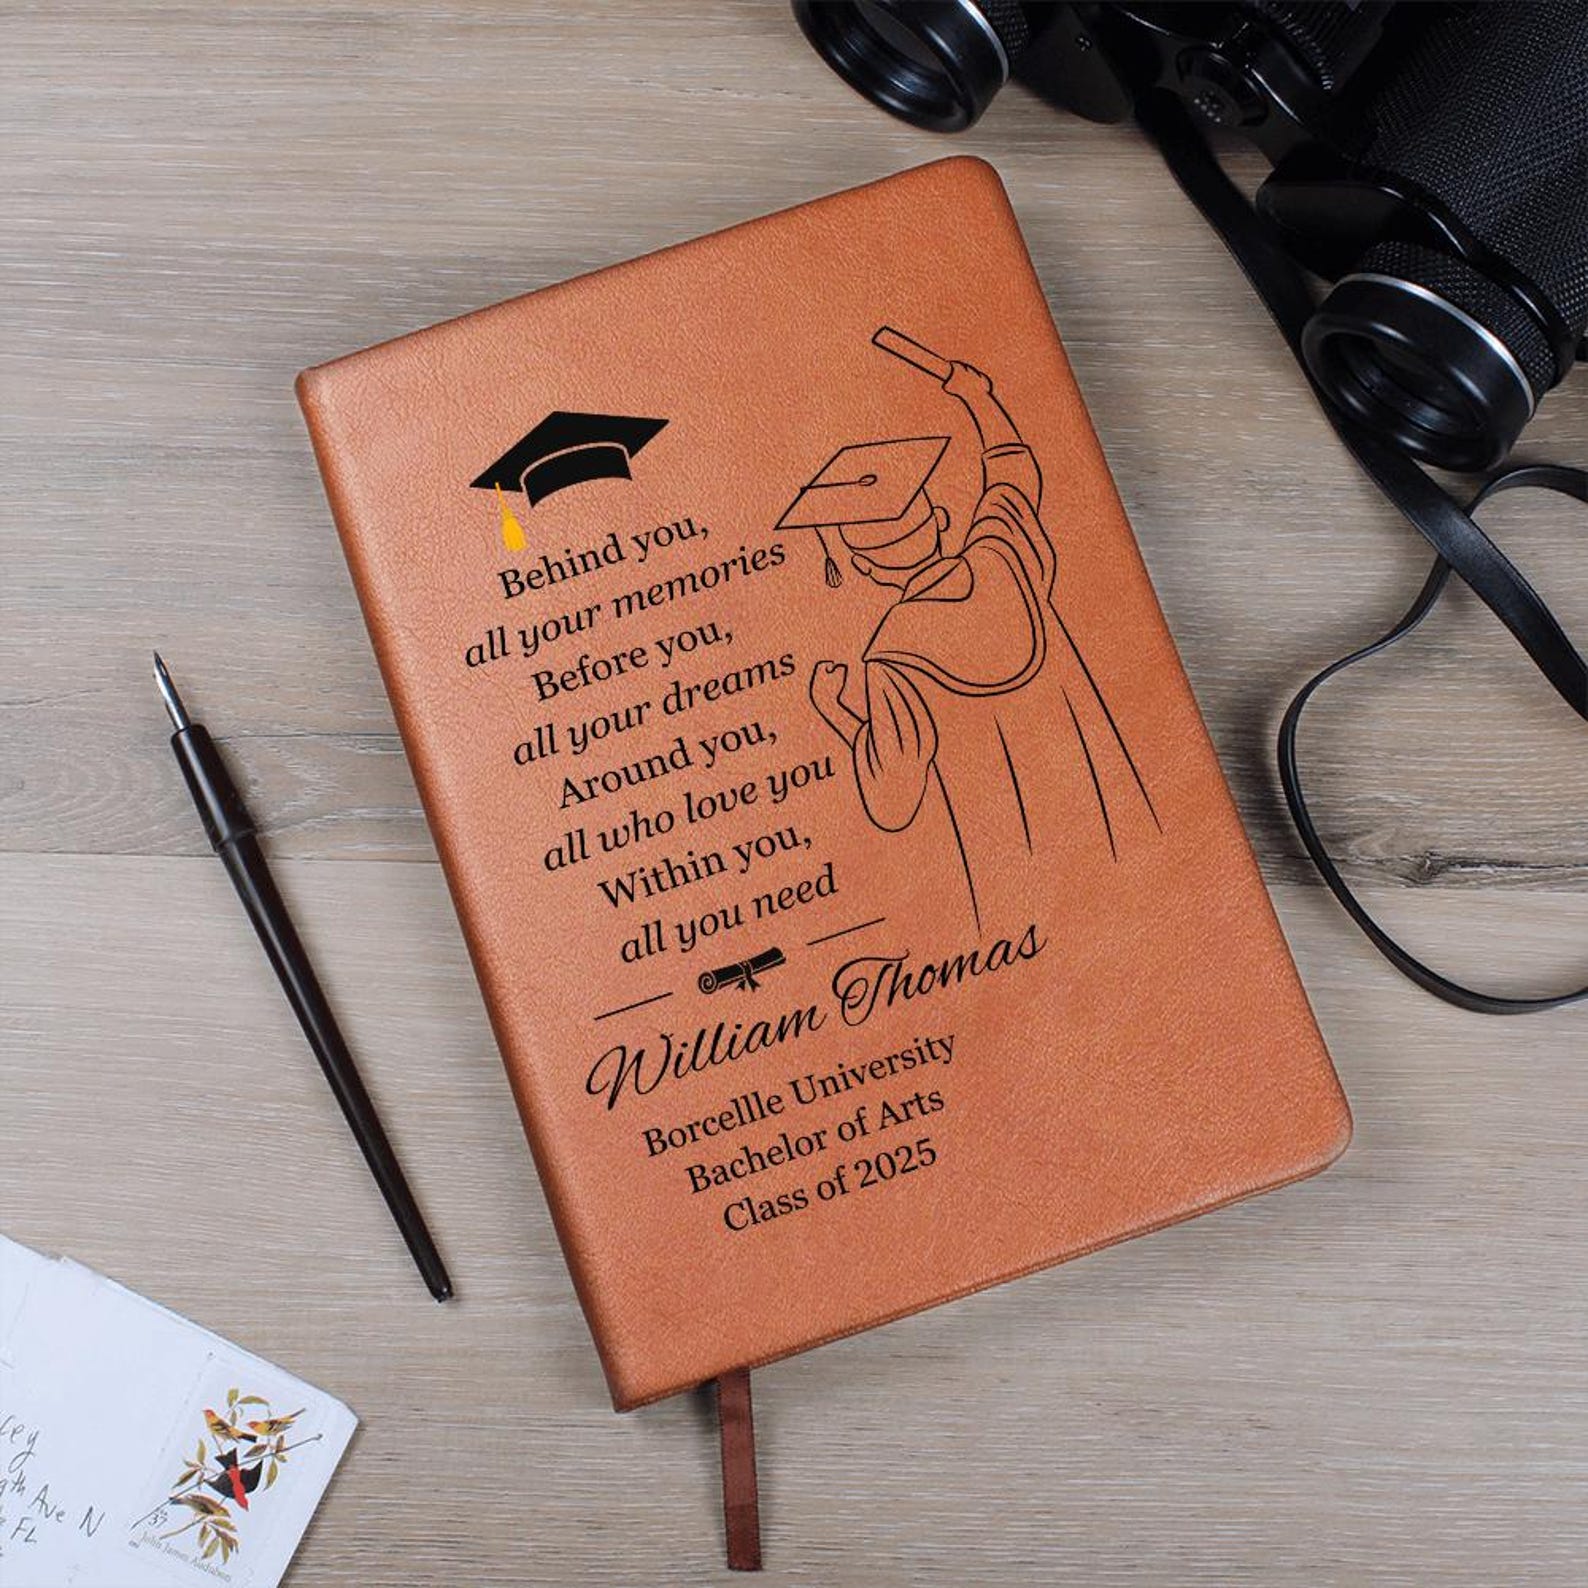 Behind you,
all your memories
Before you,
all your dreams
Around you,
all who love you
Within you,
all you need
William Thomas
Borcellle University
Bachelor of Arts
Class of 2025
Ave N
FL
37
John James Audubon